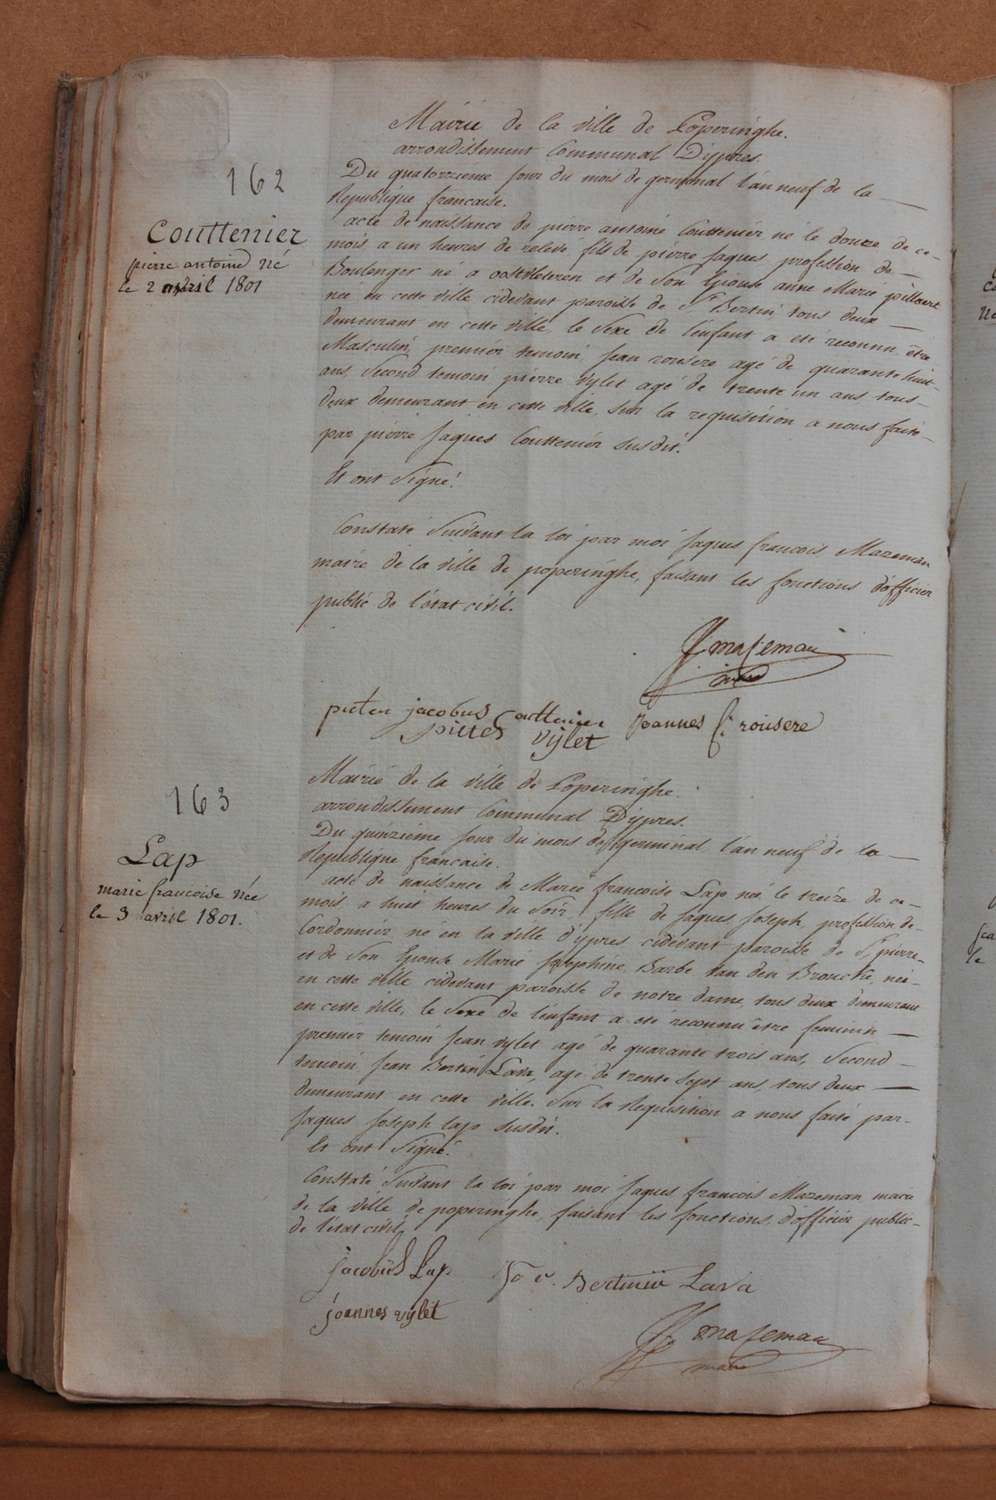 162
Couttenier
pierre antoine né
le 2 avril 1801
Mairie de la ville de Poperinghe.
arrondissement Communal D'ypres.
Du quatorzieme jour du mois de germinal l'an neuf de la
Republique francaise.
acte de naissance de pierre antoine Couttenier né le douze de ce-
mois a un heures de relevé fils de pierre jaques profession de
Boulenger né a oostvleteren et de son Epouse anne Marie pillaert
née en cette ville cidevant paroisse de St Bertin, tous deux
demeurant en cette ville le sexe de l'enfant a été reconnu être
Masculin, premier temoin Jean rousere agé de quarante huit
ans, second temoin pierre vylet agé de trente un ans tous
deux demeurant en cette ville, sur la requisition a nous faite
par pierre jaques Couttenier susdit.
Et ont signé.
Constaté suivant la loi par moi jaques francois Mazeman
maire de la ville de poperinghe, faisant les fonctions d'officier
public de l'état civil.
mazeman
maire
pieter jacobus Couttenier Joannes f. rousere
pitter vylet
163
Lap
marie francoise née
le 3 avril 1801.
Mairie de la ville de Poperinghe.
arrondissement Communal D'ypres.
Du quinzieme jour du mois de germinal l'an neuf de la
Republique francaise.
acte de naissance de Marie francoise Lap née le treize de ce-
mois a huit heures du soir fille de jaques joseph profession de
Cordonnier né en la ville d'ypres cidevant paroisse de St pierre
et de son Epouse Marie josephine Barbe van den Broucke, née
en cette ville cidevant paroisse de notre dame tous deux demeurant
en cette ville, le sexe de l'enfant a été reconnu être feminin
premier temoin jean vylet agé de quarante trois ans, second
temoin jean Bertin Lava, agé de trente sept ans, tous deux
demeurant en cette ville. Sur la Requisition a nous faite par
jaques joseph lap susdit.
Et ont signé.
Constaté suivant la loi par moi jaques francois Mazeman maire
de la ville de poperinghe, faisant les fonctions d'officier public
de l'état civil
jacobus Lap Bertinus Lava
joannes vylet
mazeman
maire